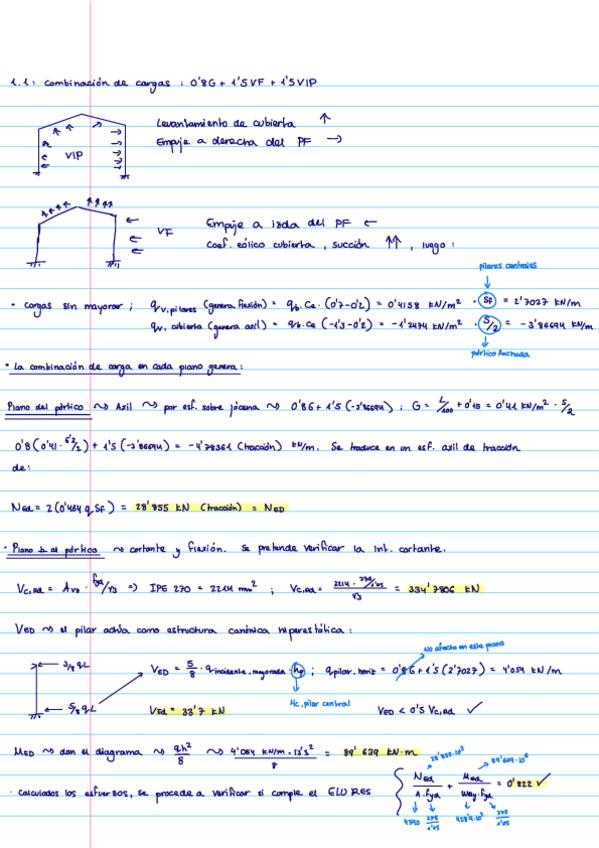 1.1: Combinación de cargas : 0'8G + 1'5VF + 1'5VIP
Levantamiento de cubierta ↑
Empuje a derecha del PF →
VIP
VF
Empuje a izda del PF ←
Coef. eólico cubierta, succión ↑↑, luego:
pilares centrales
• Cargas sin mayorar; qv,pilares (genera flexión) = qb·Ce·(0'7-0'2) = 0'4158 KN/m² · SF = 2'7027 KN/m
qv, cubierta (genera axil) = qb·Ce (-1'3-0'2) = -1'2474 KN/m² · S/2 = -3'86694 KN/m
pórtico fachada
• La combinación de carga en cada plano genera:
Plano del pórtico ~> Axil ~> por esf. sobre jácena ~> 0'8G + 1'5(-3'86694) ; G = L/100 + 0'15 = 0'41 KN/m² · S/2
0'8(0'41 · 6'2/2) + 1'5(-3'86694) = -4'78361 (tracción) KN/m. Se traduce en un esf. axil de tracción
de:
NEd = 2(0'464 q SF) = 28'855 KN (tracción) = NED
• Plano ⊥ al pórtico ~> cortante y flexión. Se pretende verificar la int. cortante.
Vc,Rd = Avz · fyd/√3 => IPE 270 = 2214 mm² ; Vc,Rd = 2214 · 275/1'05 / √3 = 334'7806 KN
VED ~> el pilar actúa como estructura canónica hiperestática:
No afecta en este plano
3/8 qL
VED = 5/8 · q incidente, mayorada · hp ; q pilar, horiz = 0'8G + 1'5(2'7027) = 4'054 KN/m
5/8 qL
hc, pilar central
VEd = 33'7 KN
VED < 0'5 Vc,Rd ✓
MED ~> dan el diagrama ~> qh²/8 ~> 4'054 KN/m · 13'3²/8 = 89'639 KN·m
28'855·10³
89'639·10⁶
NEd/A·fyd + MEd/Wely·fyd = 0'822 ✓
• Calculados los esfuerzos, se procede a verificar si cumple el ELU RES
4590 275/1'05 428'9·10³ 275/1'05